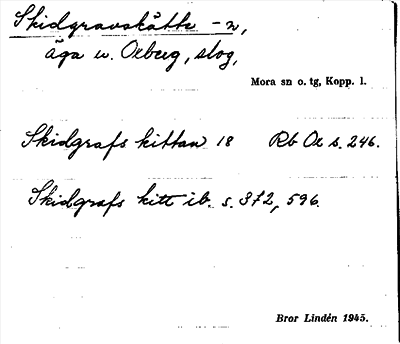 Skidgravskått -n,
äga u. Oxberg, skog,
Mora sn o. tg, Kopp. l.
Skidgrafs kittan 18 Rb Ox s. 246.
Skidgrafs kitt ib. s. 372, 596.
Bror Lindén 1945.